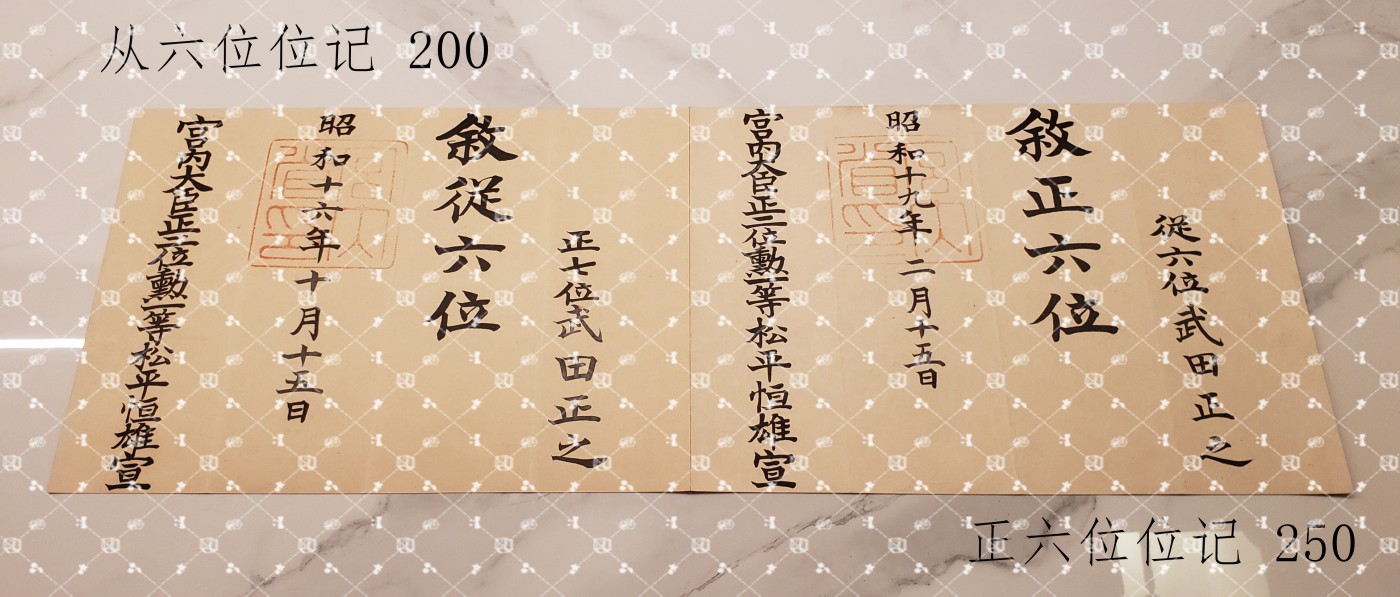 从六位位记 200
從六位武田正之
敘正六位
昭和十九年二月十五日
宮内大臣正三位勳一等松平恒雄宣
正七位武田正之
敘從六位
昭和十六年十月十五日
宮内大臣正三位勳一等松平恒雄宣
正六位位记 250